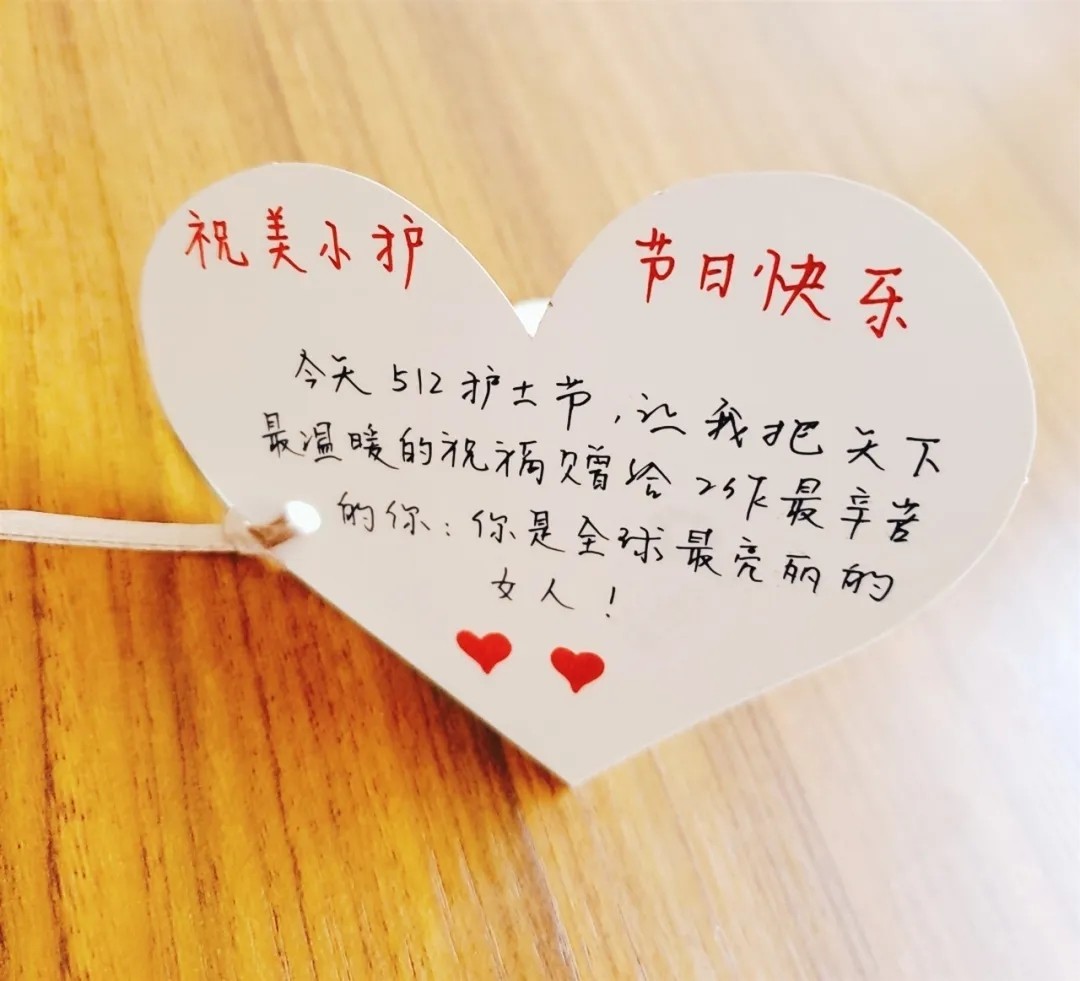 祝美小护 节日快乐
今天512护士节,让我把天下
最温暖的祝福赠给工作最辛苦
的你:你是全球最亮丽的
女人!